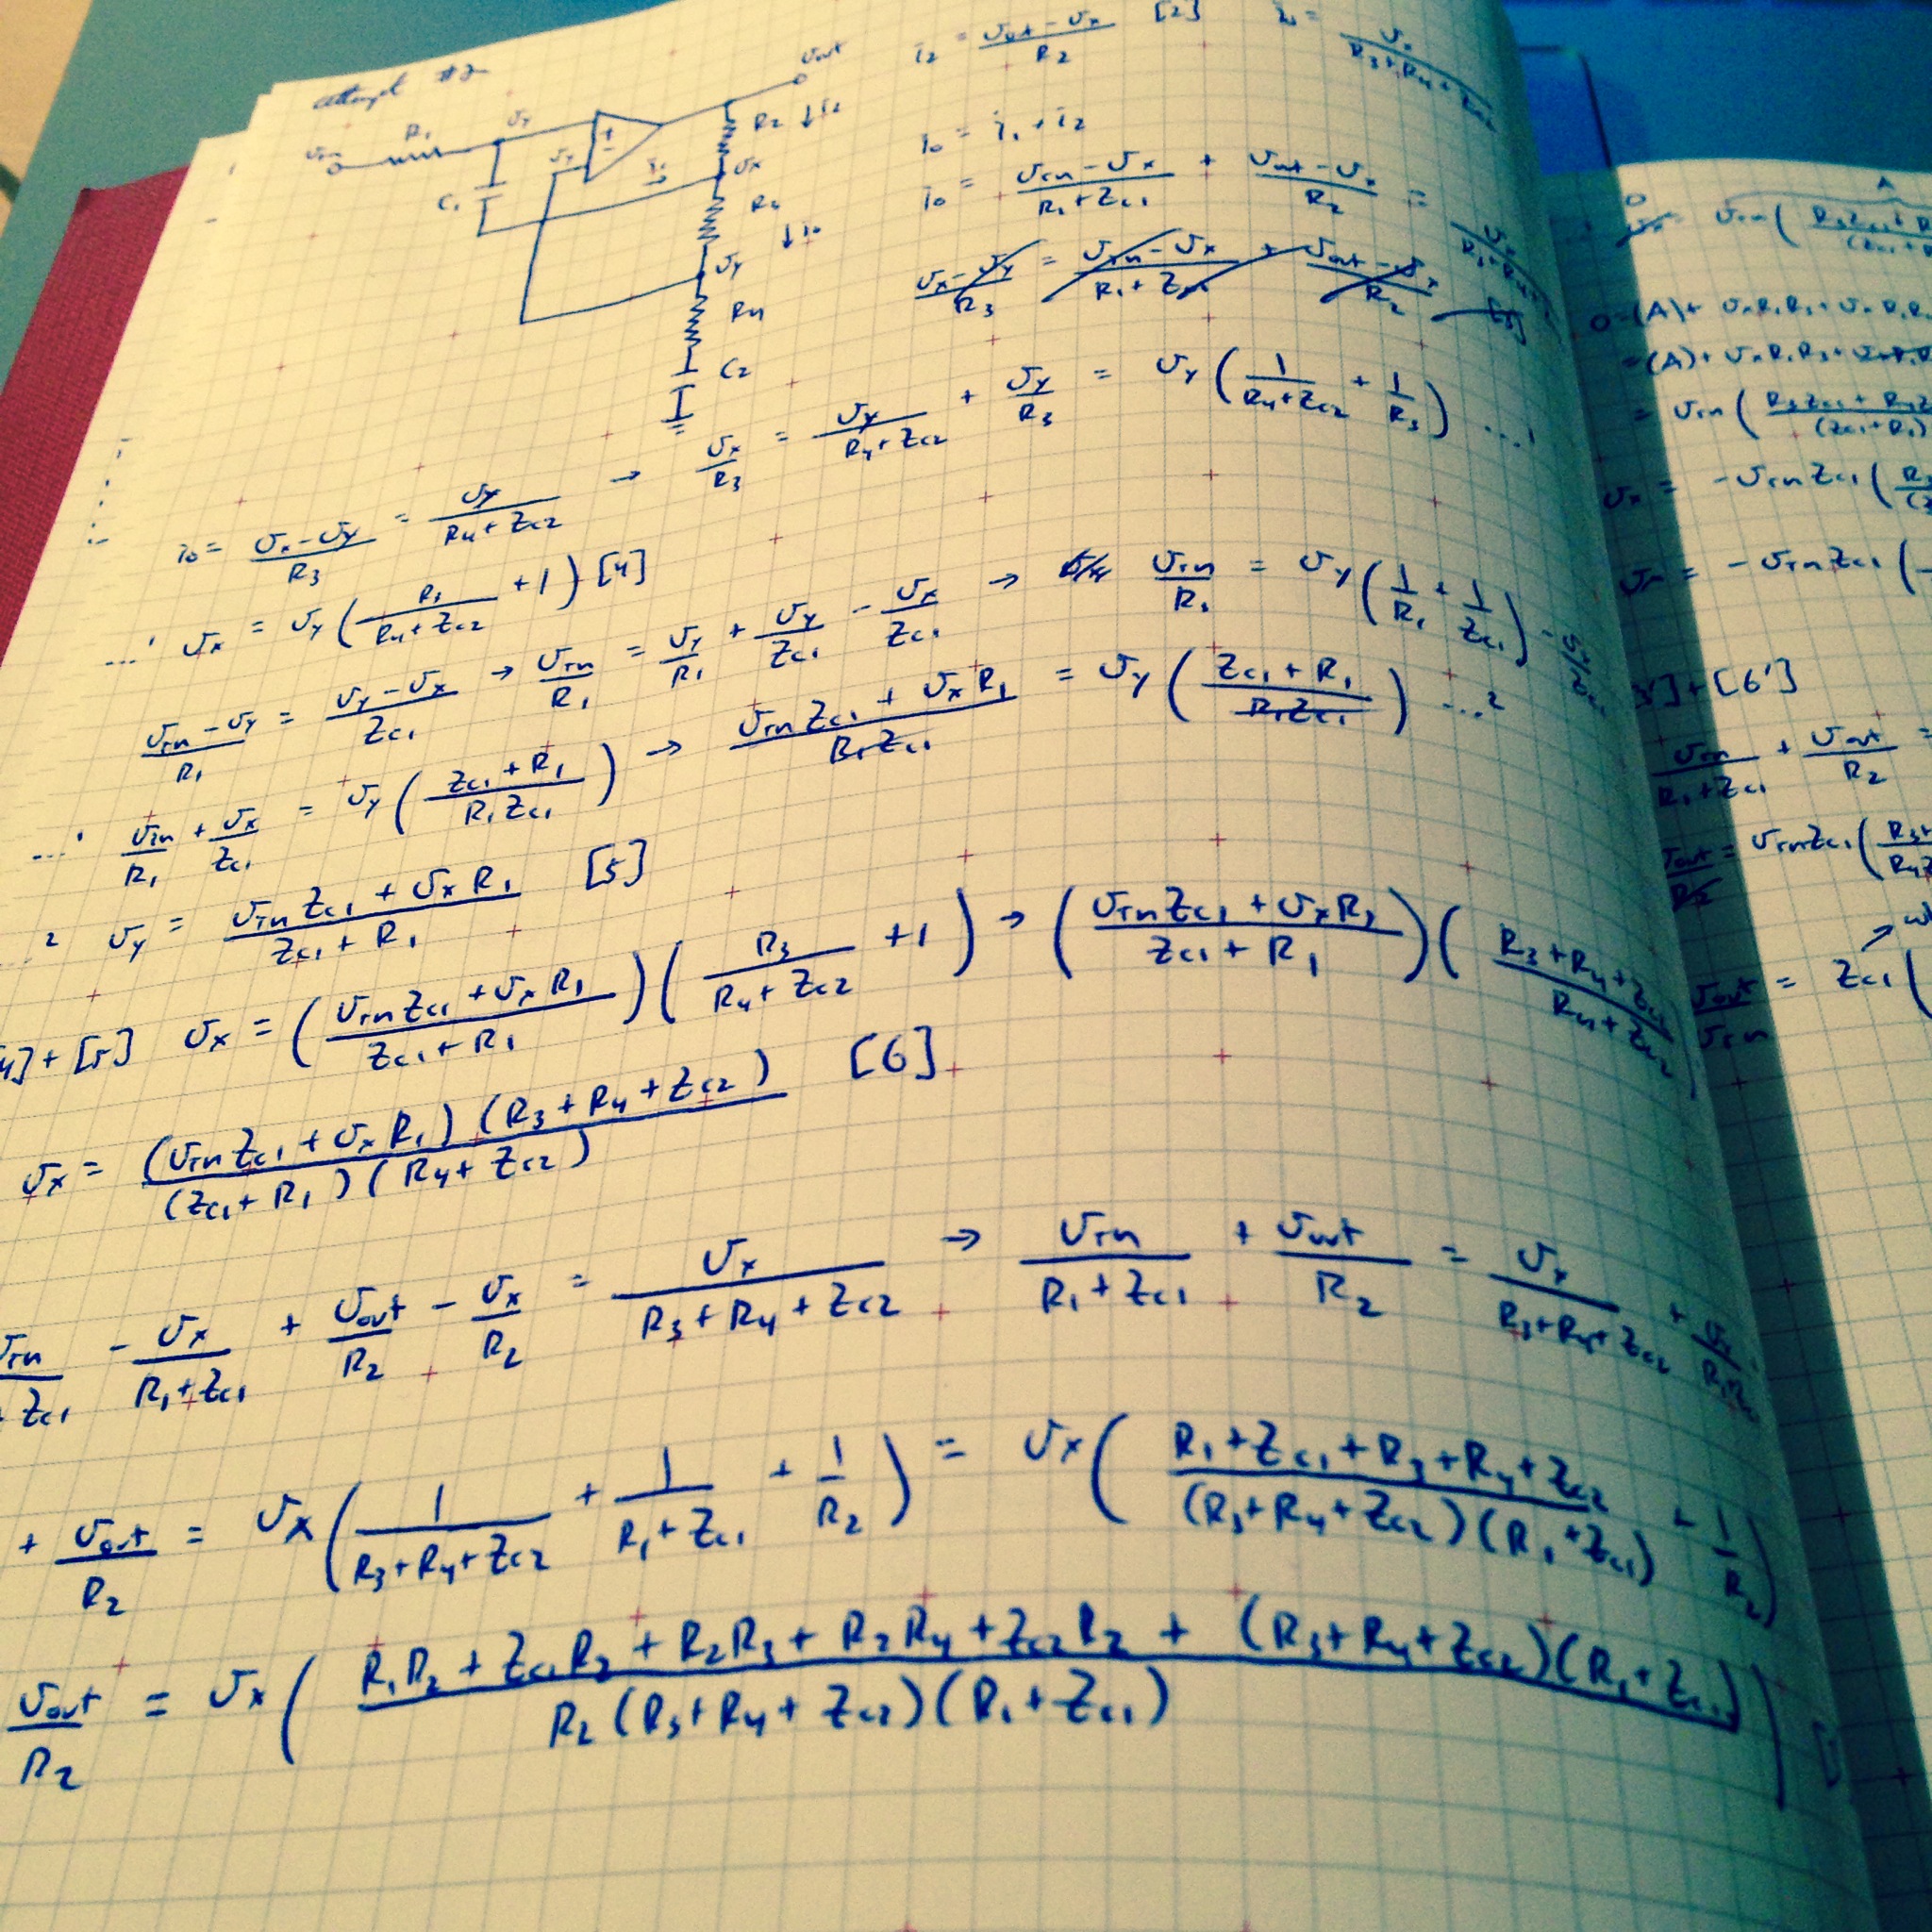 Attempt #2
vin R1 vy + - vy i1 C1 vout R2 ↓i2 vx R3 ↓i0 vy R4 C2
i2 = (vout - vx)/R2 [2]
i0 = vx/(R3+R4+Zc2)
i0 = i1 + i2
i0 = (vin - vx)/(R1+Zc1) + (vout - vx)/R2 = vx/(R3+R4+
(vx - vy)/R3 = (vin - vx)/(R1+Zc1) + (vout - vx)/R2 [3]
i0 = (vx - vy)/R3 = vy/(R4+Zc2) → vx/R3 = vy/(R4+Zc2) + vy/R3 = vy(1/(R4+Zc2) + 1/R3) ...1
...1 vx = vy(R3/(R4+Zc2) + 1) [4]
(vin - vy)/R1 = (vy - vx)/Zc1 → vin/R1 = vy/R1 + vy/Zc1 - vx/Zc1 → vin/R1 = vy(1/R1 + 1/Zc1) - vx/Zc1
...1 vin/R1 + vx/Zc1 = vy((Zc1+R1)/(R1Zc1)) → (vinZc1 + vxR1)/(R1Zc1) = vy((Zc1+R1)/(R1Zc1)) ...2
..2 vy = (vinZc1 + vxR1)/(Zc1+R1) [5]
4]+[5] vx = ((vinZc1 + vxR1)/(Zc1+R1))(R3/(R4+Zc2) + 1) → ((vinZc1 + vxR1)/(Zc1+R1))((R3+R4+Zc2)/(R4+Zc2))
vx = (vinZc1 + vxR1)(R3+R4+Zc2)/(Zc1+R1)(R4+Zc2) [6]
vin/+Zc1 - vx/(R1+Zc1) + vout/R2 - vx/R2 = vx/(R3+R4+Zc2) → vin/(R1+Zc1) + vout/R2 = vx/(R3+R4+Zc2) + vx/
+ vout/R2 = vx(1/(R3+R4+Zc2) + 1/(R1+Zc1) + 1/R2) = vx((R1+Zc1+R3+R4+Zc2)/(R3+R4+Zc2)(R1+Zc1) + 1/R2)
vout/R2 = vx((R1R2 + Zc1R2 + R2R3 + R2R4 + Zc2R2 + (R3+R4+Zc2)(R1+Zc1))/R2(R3+R4+Zc2)(R1+Zc1))
A
0
vin(
0=(A)+ vxR1R3 +
=(A)+ vxR1R3 +
= vin((R3Zc1+
vx = -vinZc1(
= -vinZc1(
3']+[6']
vin/(R1+Zc1) + vout/R2 =
vout/R2 = vinZc1(
vout/vin = Zc1(